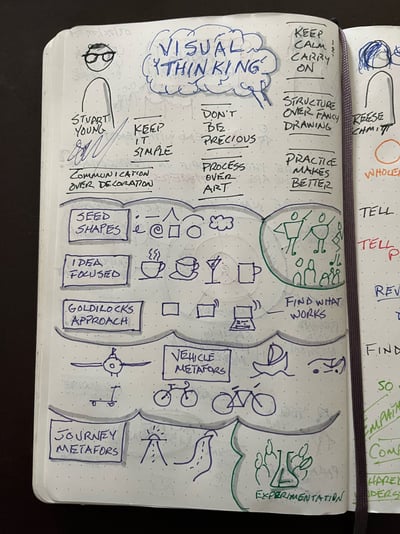 VISUAL
THINKING
KEEP
CALM &
CARRY
ON
STUART
YOUNG
KEEP
IT
SIMPLE
DON'T
BE
PRECIOUS
STRUCTURE
OVER FANCY
DRAWING
COMMUNICATION
OVER DECORATION
PROCESS
OVER
ART
PRACTICE
MAKES
BETTER
SEED
SHAPES
IDEA
FOCUSED
GOLDILOCKS
APPROACH
FIND WHAT
WORKS
VEHICLE
METAFORS
JOURNEY
METAFORS
EXPERIMENTATION
REESE
SCHMITT
TELL
TELL
FIND
SO